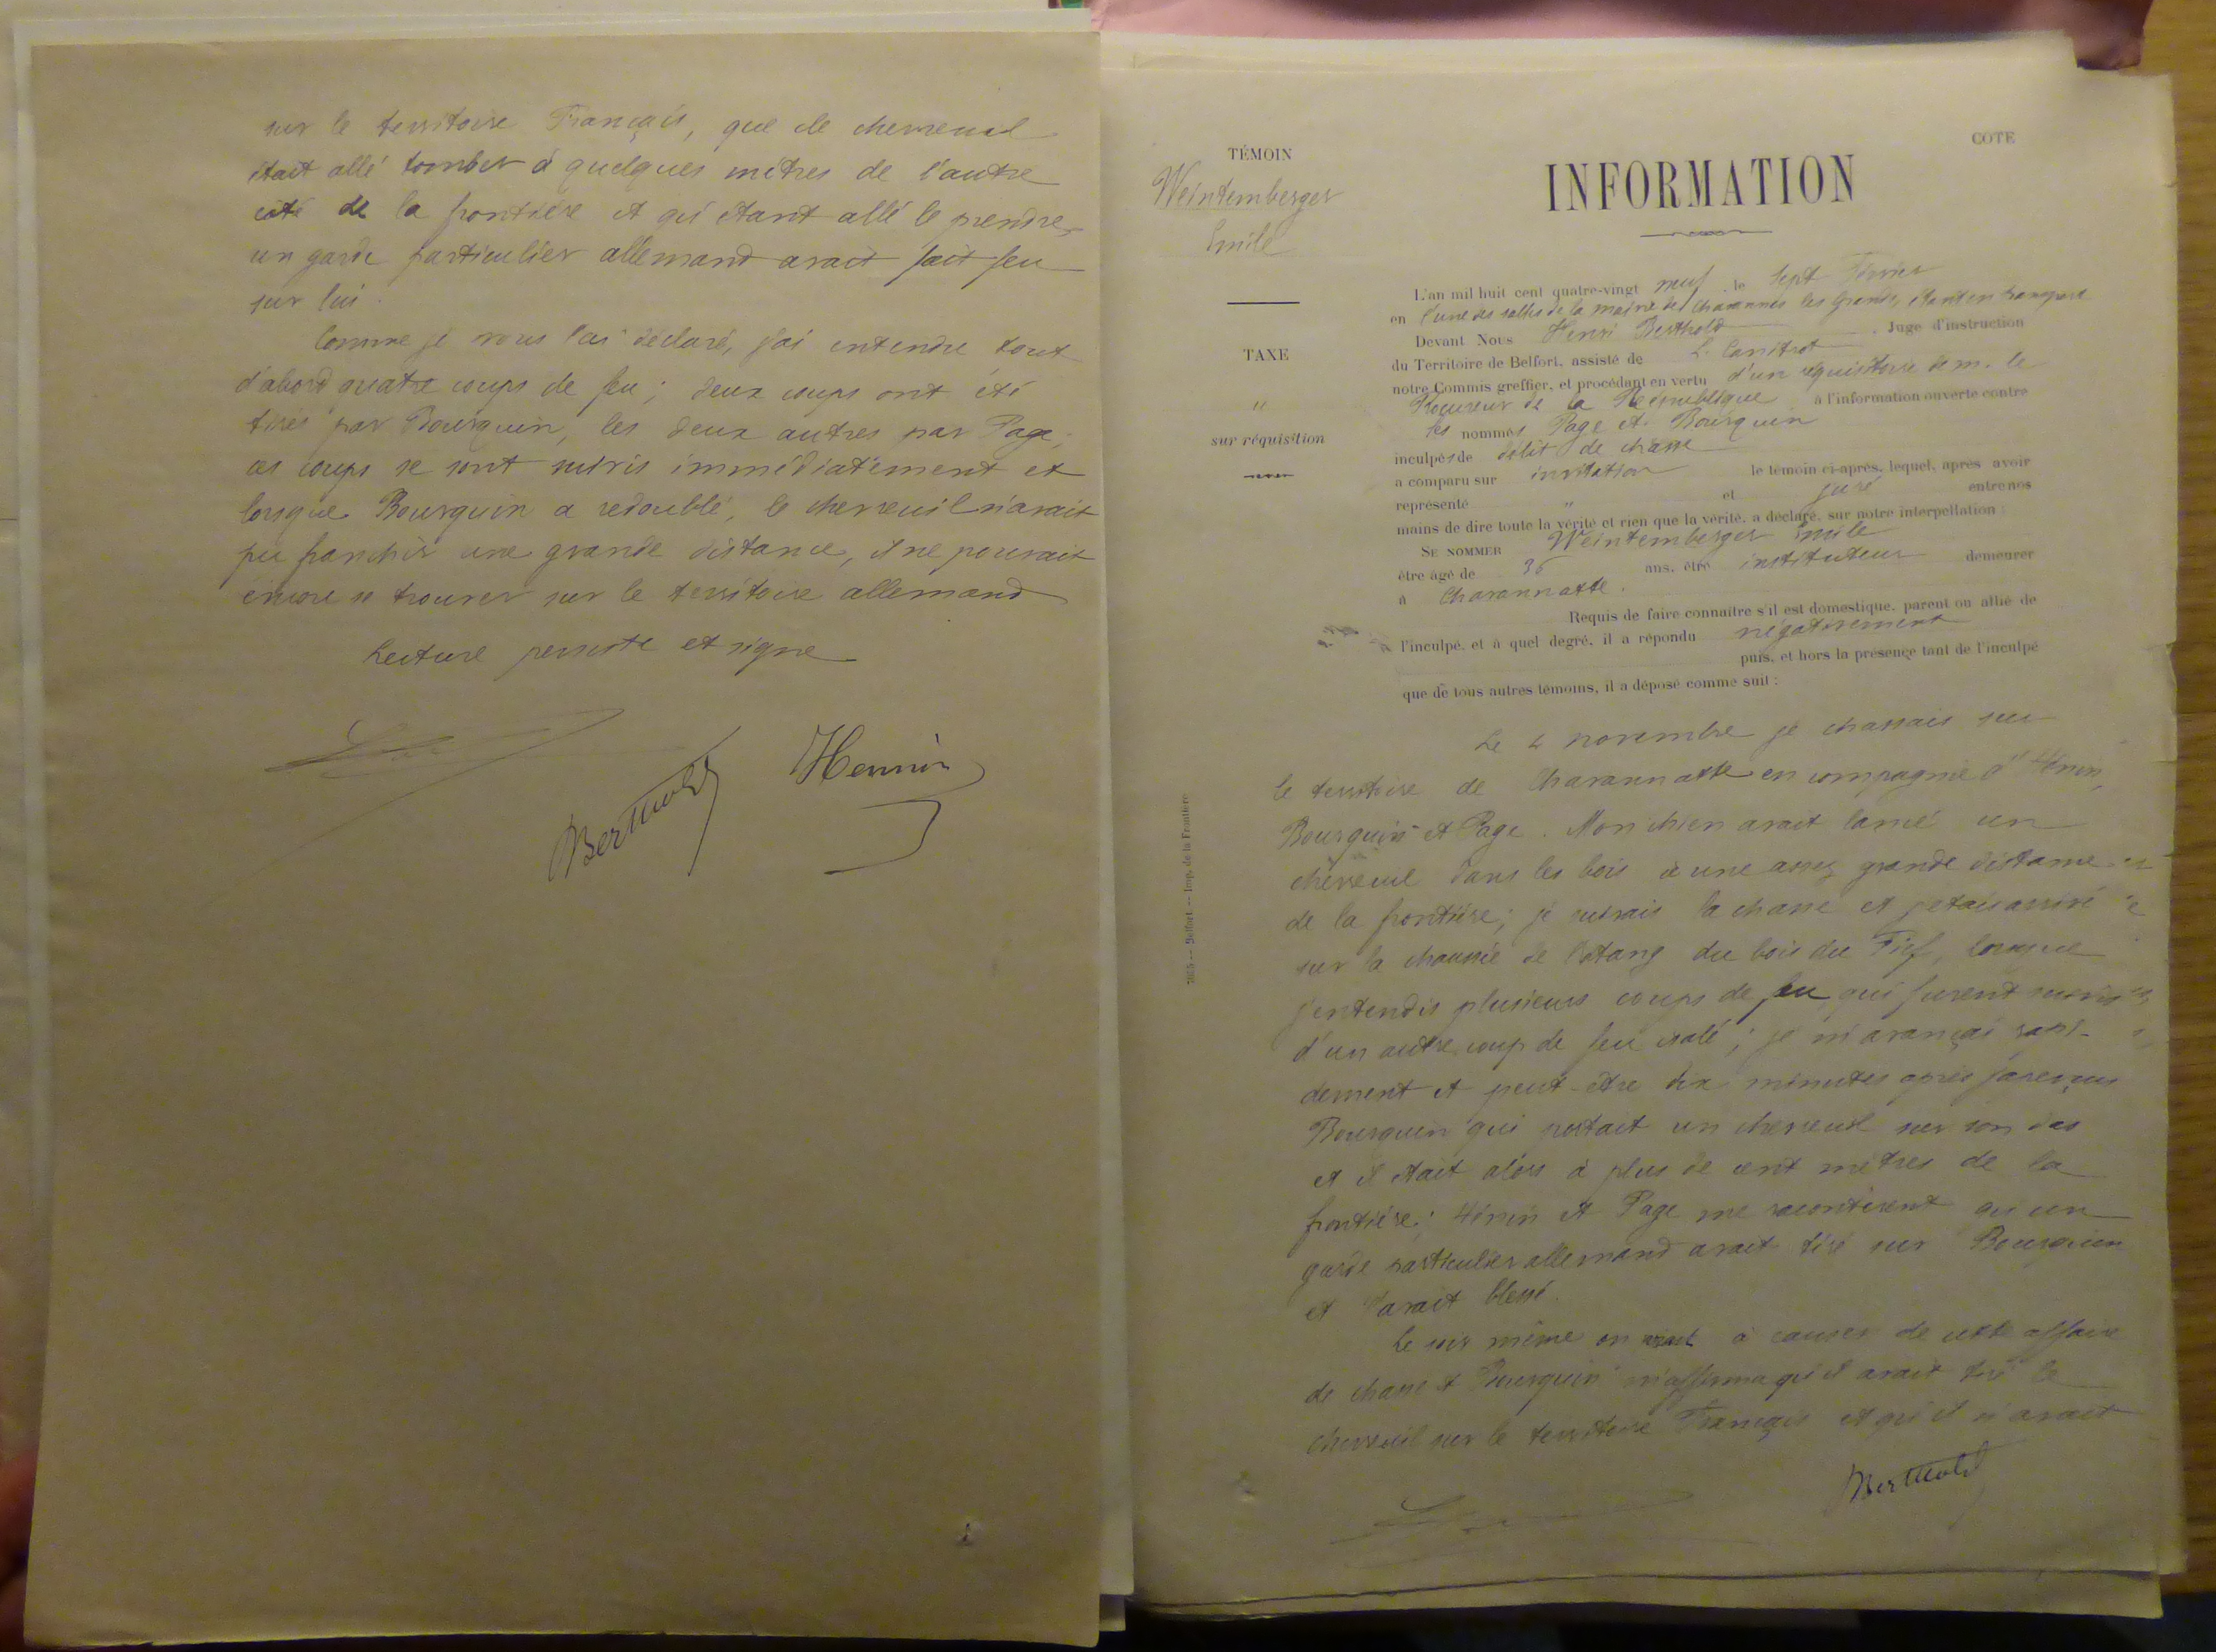 sur le territoire Français, que le chevreuil
était allé tomber à quelques mètres de l'autre
côté de la frontière et qu'étant allé le prendre,
un garde particulier allemand avait fait feu
sur lui.
Comme je vous l'ai déclaré, j'ai entendu tout
d'abord quatre coups de feu ; deux coups ont été
tirés par Bourquin, les deux autres par Page ;
ces coups se sont suivis immédiatement et
lorsque Bourquin a redoublé, le chevreuil n'avait
pu franchir une grande distance, il ne pouvait
encore se trouver sur le territoire allemand
Lecture persiste et signe
Berthold Hennin
COTE
TÉMOIN
Weintemberger
Emile
TAXE
"
sur réquisition
INFORMATION
L'an mil huit cent quatre-vingt neuf, le sept Février
en l'une des salles de la mairie de Chavannes les Grands, étant en transport
Devant Nous Henri Berthold, Juge d'instruction
du Territoire de Belfort, assisté de L. Canitrot
notre Commis greffier, et procédant en vertu d'un réquisitoire de m. le
Procureur de la République à l'information ouverte contre
les nommés Page et Bourquin
inculpés de délit de chasse
a comparu sur invitation le témoin ci-après, lequel, après avoir
représenté " et juré entre nos
mains de dire toute la vérité et rien que la vérité, a déclaré, sur notre interpellation :
SE NOMMER Weintemberger Emile
être âgé de 36 ans, être instituteur demeurer
à Chavannatte.
Requis de faire connaître s'il est domestique, parent ou allié de
l'inculpé, et à quel degré, il a répondu négativement
puis, et hors la présence tant de l'inculpé
que de tous autres témoins, il a déposé comme suit :
Le 4 novembre je chassais sur
le territoire de Chavannatte en compagnie d'Hénin,
Bourquin et Page. Mon chien avait lancé un
chevreuil dans les bois à une assez grande distance
de la frontière ; je suivais la chasse et j'étais arrivé
sur la chaussée de l'étang du bois du Fief, lorsque
j'entendis plusieurs coups de feu qui furent suivis
d'un autre coup de feu isolé ; je m'avançai rapi-
dement et peut-être dix minutes après j'aperçus
Bourquin qui portait un chevreuil sur son dos
et il était alors à plus de cent mètres de la
frontière ; Hénin et Page me racontèrent qu'un
garde particulier allemand avait tiré sur Bourquin
et l'avait blessé.
Le soir même on vint à causer de cette affaire
de chasse et Bourquin m'affirma qu'il avait tiré le
chevreuil sur le territoire Français et qu'il n'avait
Berthold
Belfort. — Imp. de la Frontière